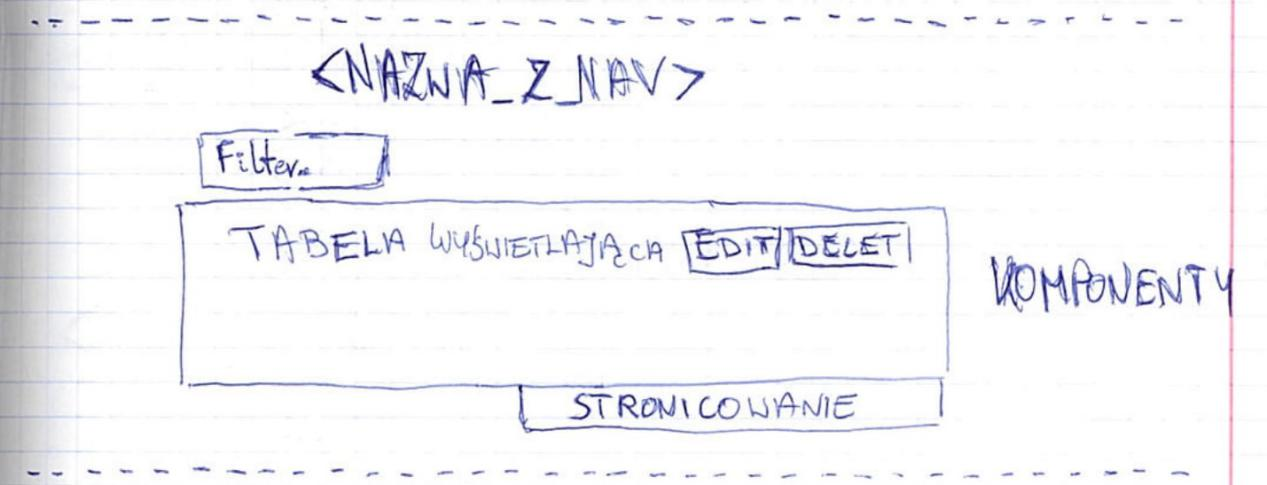 <NAZWA_Z_NAV>
Filter..
TABELA WYŚWIETLAJĄCA EDIT DELET
KOMPONENTY
STRONICOWANIE